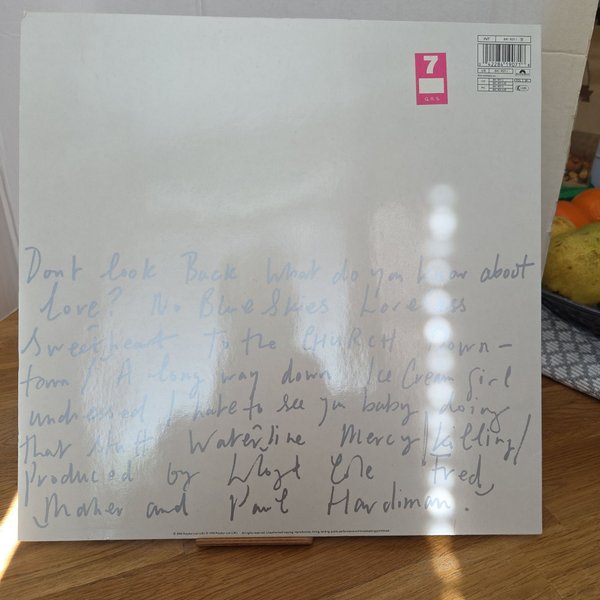 7
G.R.S.
Dont look Back. What do you know about
Love? No Blue Skies Loveless
Sweetheart To the CHURCH Down-
town / A long way down Ice Cream girl
undressed I hate to see you baby doing
that stuff Waterline Mercy/killing/
Produced by Lloyd Cole Fred
Maher and Paul Hardiman.